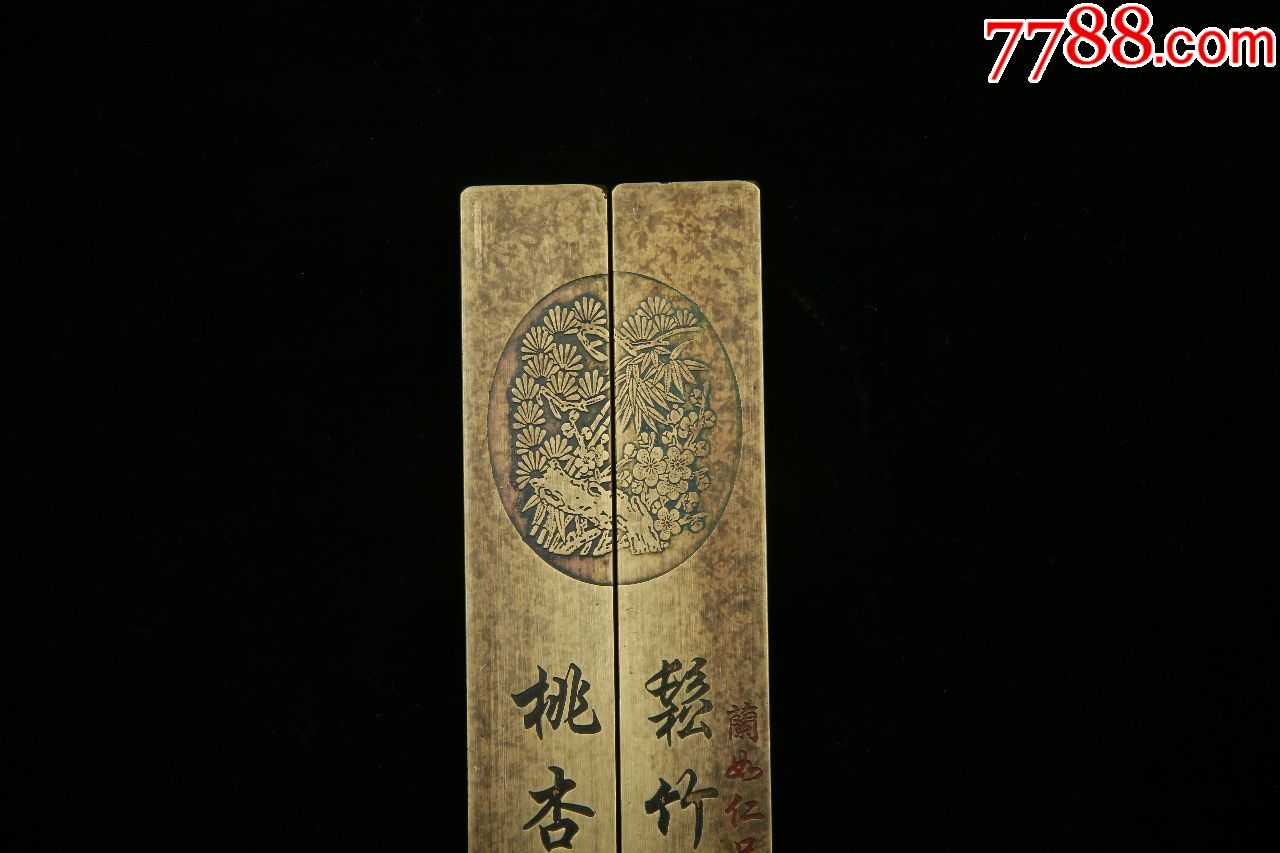 7788.com
蘭如仁兄
鬆竹
桃杏